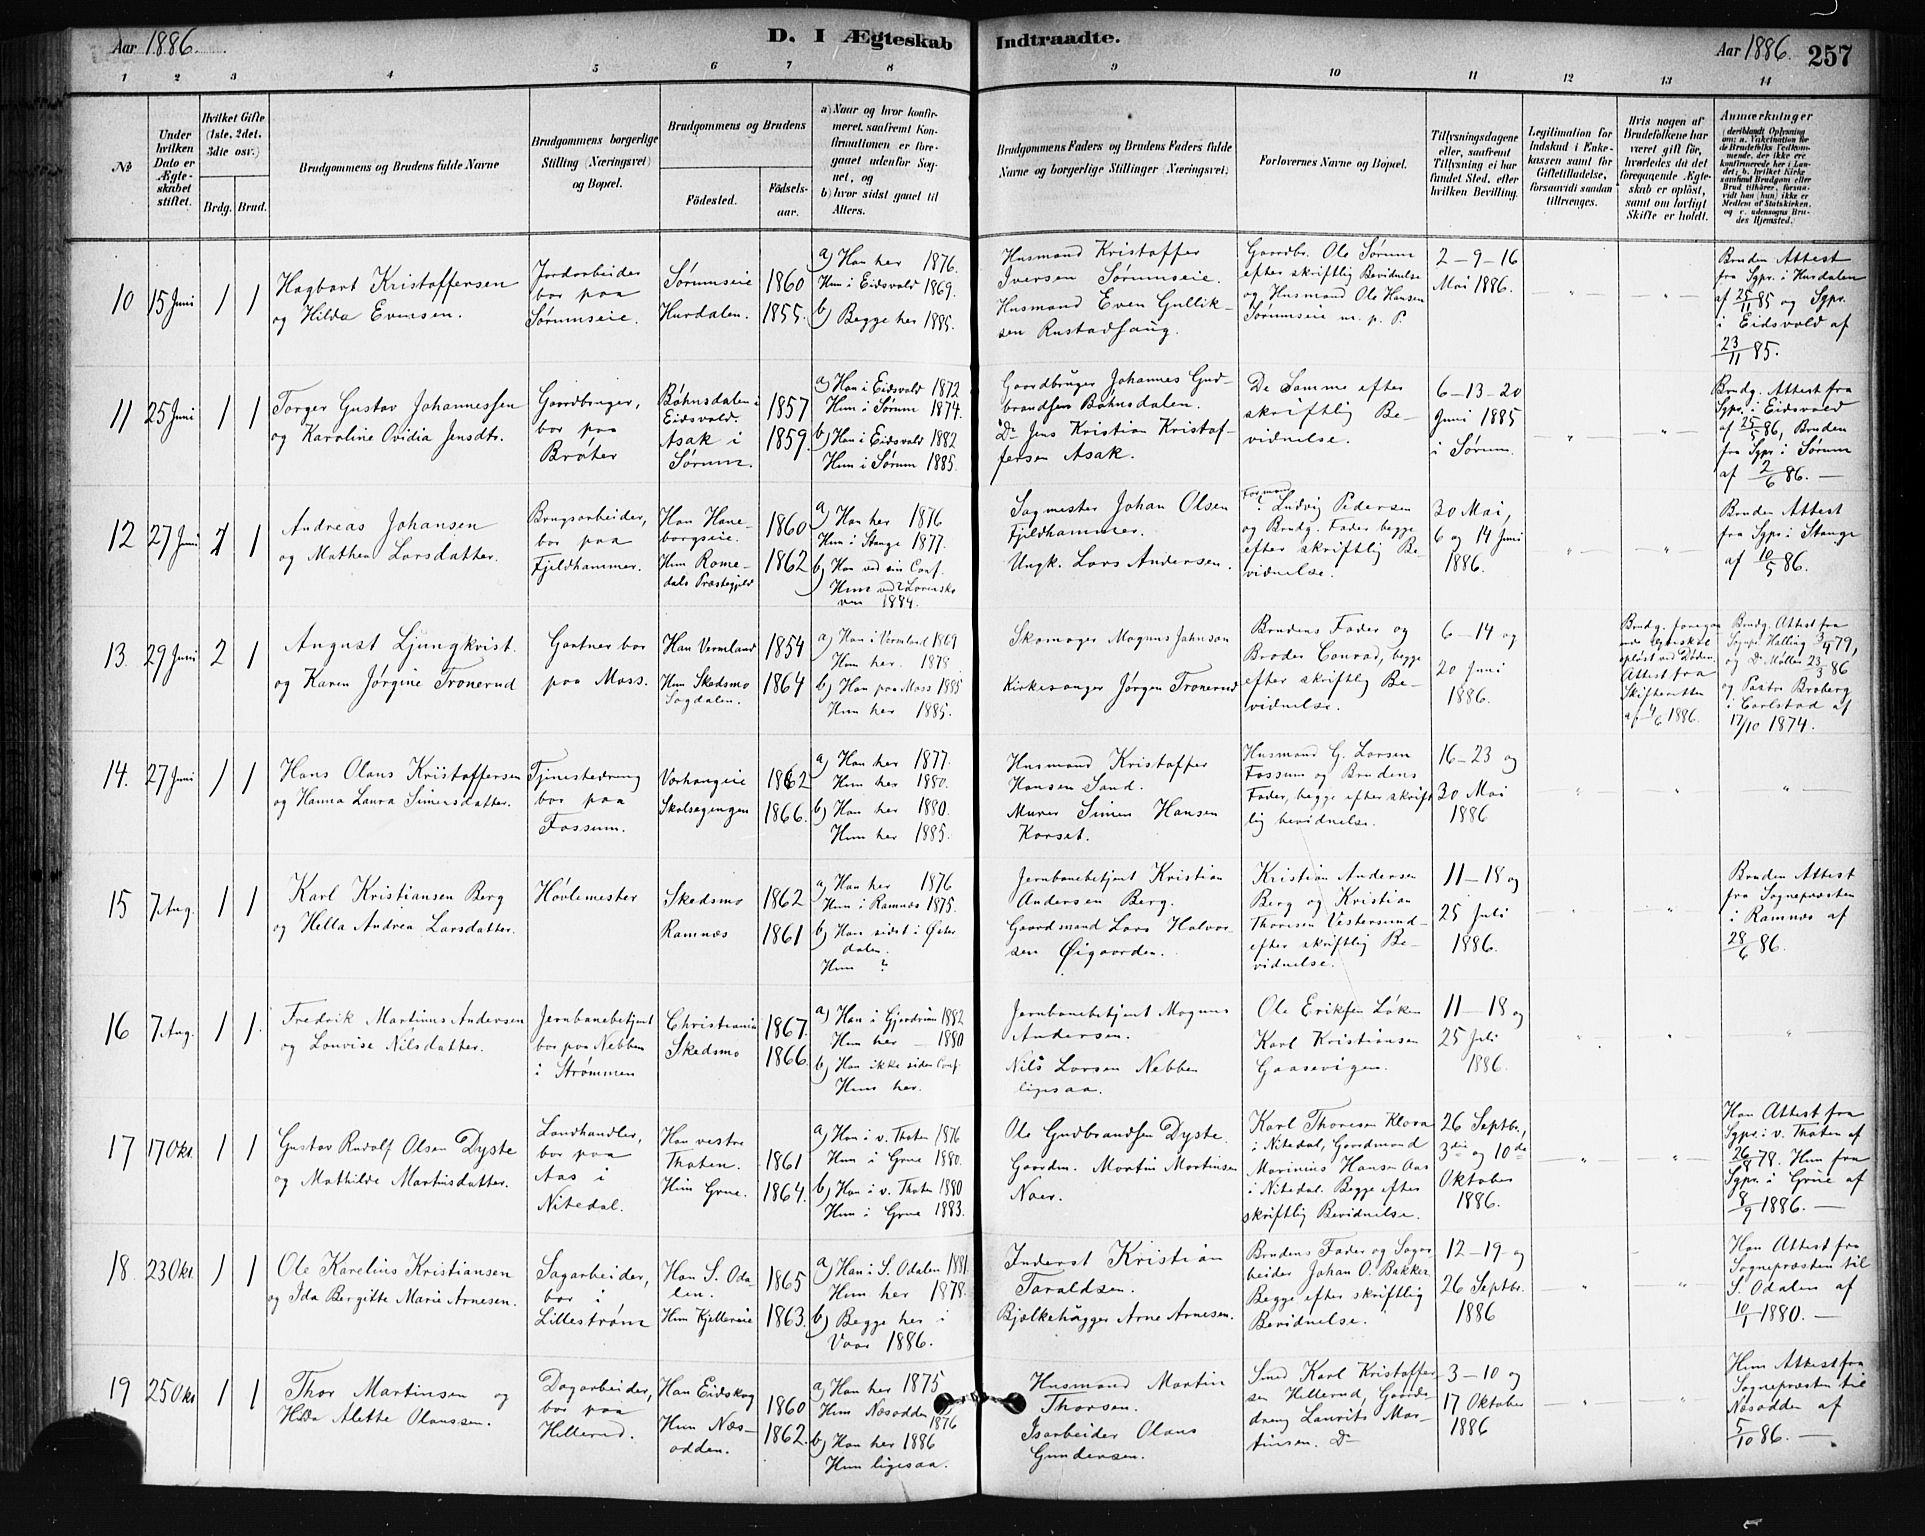 Aar 1886.
D. I Ægteskab Indtraadte.
Aar 1886. 257
1 2 3 4 5 6 7 8 9 10 11 12 13 14
No
Under hvilken Dato er Ægteskabet stiftet.
Hvilket Gifte (1ste, 2det, 3die osv.)
Brdg. Brud.
Brudgommens og Brudens fulde Navne
Brudgommens borgerlige Stilling (Næringsvei) og Bopæl.
Brudgommens og Brudens
Fødested. Fødselsaar.
a) Naar og hvor konfirmeret, saafremt Konfirmationen er foregaaet udenfor Sognet, og
b) hvor sidst gaaet til Alters.
Brudgommens Faders og Brudens Faders fulde Navne og borgerlige Stillinger (Næringsvei).
Forlovernes Navne og Bopæl.
Tillysningsdagene eller, saafremt Tillysning ei har fundet Sted, efter hvilken Bevilling.
Legitimation for Indskud i Enkekassen samt for Giftetilladelse, forsaavidt saadan tiltrænges.
Hvis nogen af Brudefolkene har været gift før, hvorledes da det foregaaende Ægteskab er opløst, samt om lovligt Skifte er holdt.
Anmærkninger
(deriblandt Oplysning om: a. Vakcination for de Brudefolks Vedkommende, der ikke ere konfirmerede her i Landet; b. hvilket Kirkesamfund Brudgom eller Brud tilhører, forsaavidt han (hun) ikke er Medlem af Statskirken, og c. udensogns Brudes Hjemsted.
10
15 Juni
1 1
Hagbart Kristoffersen
og Hilda Evensen.
Jordarbeider
bor paa
Sørumseie.
Sørumseie 1860
Hurdalen. 1855.
a) Han her 1876.
Hun i Eidsvold 1869.
b) Begge her 1885.
Husmand Kristoffer
Iversen Sørumseie.
Husmand Even Gullik-
sen Rustadhaug.
Gaardbr. Ole Sørum
efter skriftlig Bevidnelse
og Husmand Ole Hansen
Sørumseie m. p. P.
2-9-16
Mai 1886.
Bruden Attest
fra Sgpr. i Hurdalen
af 25/11 85 og Sgpr.
i Eidsvold af
23/11 85.
11
25 Juni
1 1
Torger Gustav Johannessen
og Karoline Ovidia Jensdtr.
Gaardbruger,
bor paa
Brøter
Bøhnsdalen i
Eidsvold. 1857
Asak i
Sørum. 1859.
a) Han i Eidsvold 1872
Hun i Sørum 1874.
b) Han i Eidsvold 1882
Hun i Sørum 1885.
Gaardbruger Johannes Gud-
brandsen Bøhnsdalen.
Do Jens Kristian Kristof-
fersen Asak.
De Samme efter
skriftlig Be-
vidnelse.
6-13-20
Juni 1885
i Sørum.
Brudg. Attest fra
Sgpr. i Eidsvold
af 25/5 86, Bruden
fra Sgpr. i Sørum
af 2/6 86.
12
27 Juni
1 1
Andreas Johansen
og Mathea Larsdatter.
Brugsarbeider,
bor paa
Fjeldhammer.
Han Hane-
borgseie. 1860
Hun Rome-
dals Præstegjeld 1862
a) Han her 1876
Hun i Stange 1877.
b) Han ved sin Conf.
Hun ved Lørensko-
ven 1884.
Sagmester Johan Olsen
Fjeldhammer.
Ungk. Lars Andersen.
Formand Ludvig Pedersen
og Brudg. Fader begge
efter skriftlig Be-
vidnelse.
30 Mai,
6 og 14 Juni
1886.
Bruden Attest
fra Sgpr. i Stange
af 10/5 86.
13.
29 Juni
2 1
August Ljungkvist.
og Karen Jørgine Tronerud
Gartner bor
paa Moss.
Han Vermland 1854
Hun Skedsmo
Sagdalen. 1864
a) Han i Vermland 1869
Hun her. 1878
b) Han paa Moss 1885
Hun her 1885.
Skomager Magnus Johnson
Kirkesanger Jørgen Tronerud
Brudens Fader og
Broder Conrad, begge
efter skriftlig Be-
vidnelse.
6-14 og
20 Juni
1886.
Brudg. foregaa-
ende Ægteskab
opløst ved Døden.
Attest fra
Skifteretten
af 4/6 1886.
Brudg. Attest fra
Sognepr. Helling 3/4 79,
og Do Møller 23/3 86
og Pastor Broberg
i Carlstad af
17/10 1874.
14.
27 Juni
1 1
Hans Olaus Kristoffersen
og Hanna Laura Simensdatter.
Tjenestedreng
bor paa
Fossum.
Vorhaugeie 1862
Skolsegengen 1866.
a) Han her 1877.
Hun her 1880.
b) Han her 1880.
Hun her 1885.
Husmand Kristoffer
Hansen Sand.
Murer Simen Hansen
Korset.
Husmand G. Larsen
Fossum og Brudens
Fader, begge efter skrift-
lig bevidnelse.
16-23 og
30 Mai
1886
15
7 Aug.
1 1
Karl Kristiansen Berg
og Hella Andrea Larsdatter.
Høvlemester
Skedsmo 1862
Ramnæs 1861
a) Han her 1876
Hun i Ramnæs 1875.
b) Han sidst i Øster-
dalen.
Hun ?
Jernbanebetjent Kristian
Andersen Berg.
Gaardmand Lars Halvor-
sen Øigaarden.
Kristian Andersen
Berg og Kristian
Thoresen Vestersund
efter skriftlig Be-
vidnelse.
11-18 og
25 Juli
1886.
Bruden Attest
fra Sognepræsten
i Ramnæs af
28/6 86.
16
7 Aug.
1 1
Fredrik Martinus Andersen
og Louvise Nilsdatter.
Jernbanebetjent
bor paa Nebben
i Strømmen
Christiania 1867.
Skedsmo 1866.
a) Han i Gjerdrum 1882
Hun her 1880
b) Han ikke siden Conf.
Hun her.
Jernbanebetjent Magnus
Andersen.
Nils Larsen Nebben
ligesaa.
Ole Eriksen Løken
Karl Kristiansen
Gaasevigen.
11-18 og
25 Juli
1886.
17
17 Okt.
1 1
Gustav Rudolf Olsen Dyste
og Mathilde Martinsdatter.
Landhandler,
bor paa
Aas i
Nitedal.
Han vestre
Thoten. 1861
Hun Grue. 1864.
a) Han i v. Thoten 1876
Hun i Grue 1880.
b) Han i v. Thoten 1880
Hun i Grue 1883.
Ole Gudbrandsen Dyste.
Gaardm. Martin Martinsen
Noer.
Karl Thoresen Klova
i Nitedal, Gaardmand
Marinius Hansen Aas
i Nitedal. Begge efter
skriftlig Bevidnelse.
26 Septbr.,
3die og 10de
Oktober
1886.
Han Attest fra
Sgpr. i v. Thoten af
26/8 78. Hun fra
Sgpr. i Grue af
8/9 1886.
18.
23 Okt.
1 1
Ole Karelius Kristiansen
og Ida Bergitte Marie Arnesen.
Sagarbeider,
bor i
Lillestrøm
Han S. Oda-
len. 1865
Hun Kjellereie 1863.
a) Han i S. Odalen 1881.
Hun her 1878.
b) Begge her i
Vaar 1886.
Inderst Kristian
Taraldsen.
Bjelkehugger Arne Arnesen.
Brudens Fader og Sagar-
beider Johan O. Bakken
Begge efter skriftlig
Bevidnelse.
12-19 og
26 Septbr.
1886
Han Attest fra
Sognepræsten til
S. Odalen af
10/1 1880.
19
25 Okt
1 1
Thor Martinsen og
Hilda Alette Olaussen.
Dagarbeider,
bor paa
Hellerud.
Han Eidskog 1860
Hun Næs-
odden. 1862.
a) Han her 1875
Hun Næsodden 1876
b) Han her 1886
Hun ligesaa.
Husmand Martin
Thorsen.
Isarbeider Olaus
Gundersen.
Smed Karl Kristoffer-
sen Hellerud, Gaards-
dreng Laurits Mar-
tinsen. Do
3-10 og
17 Oktober
1886
Hun Attest fra
Sognepræsten til
Næsodden af
5/10 86.